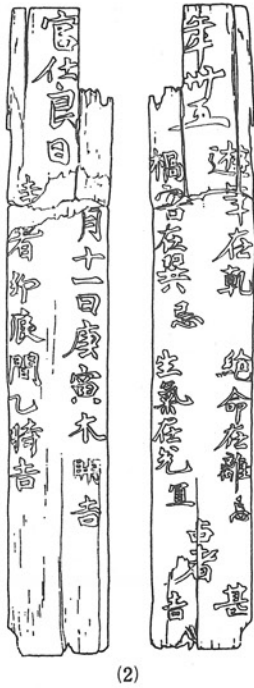 年卅五
遊年在乾 絶命在離忌 甚
禍害在巽忌 生氣在兌宜 占者 吉
宮仕良日
月十一日庚寅木開吉
者卯辰間乙時吉
(2)